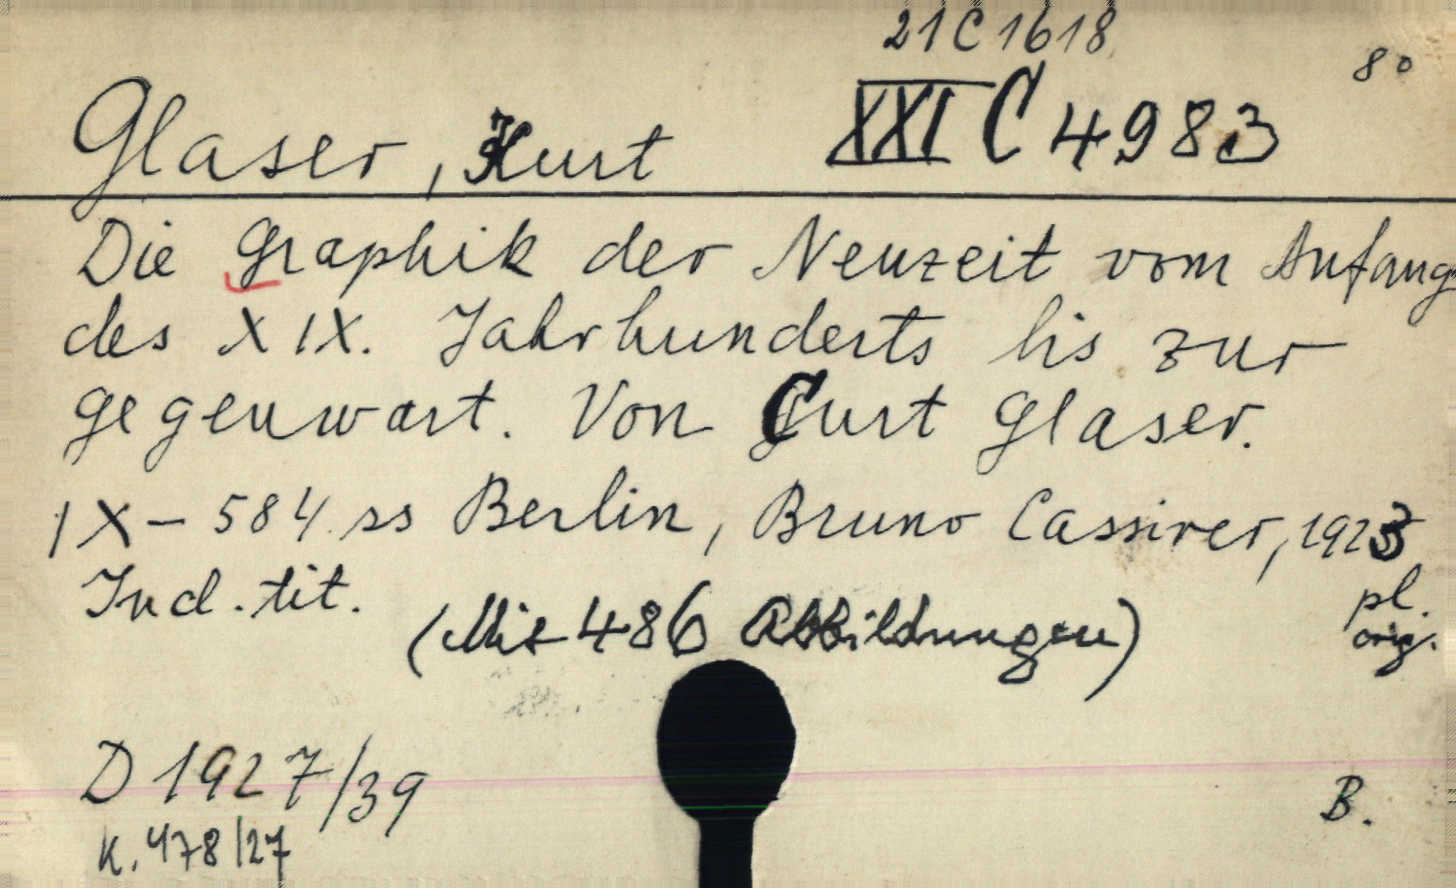 21 C 1618
8°
Glaser, Kurt XXI C 4983
Die Graphik der Neuzeit vom Anfang
des XIX. Jahrhunderts bis zur
gegenwart. Von Curt Glaser.
IX – 584 ss Berlin, Bruno Cassirer, 1923
Ind. tit. pl.
(Mit 486 Abbildungen) orig.
D 1927/39 B.
K. 478/27